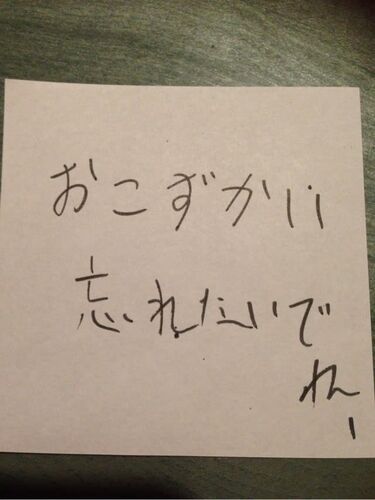 おこずかい
忘れないで
ね!